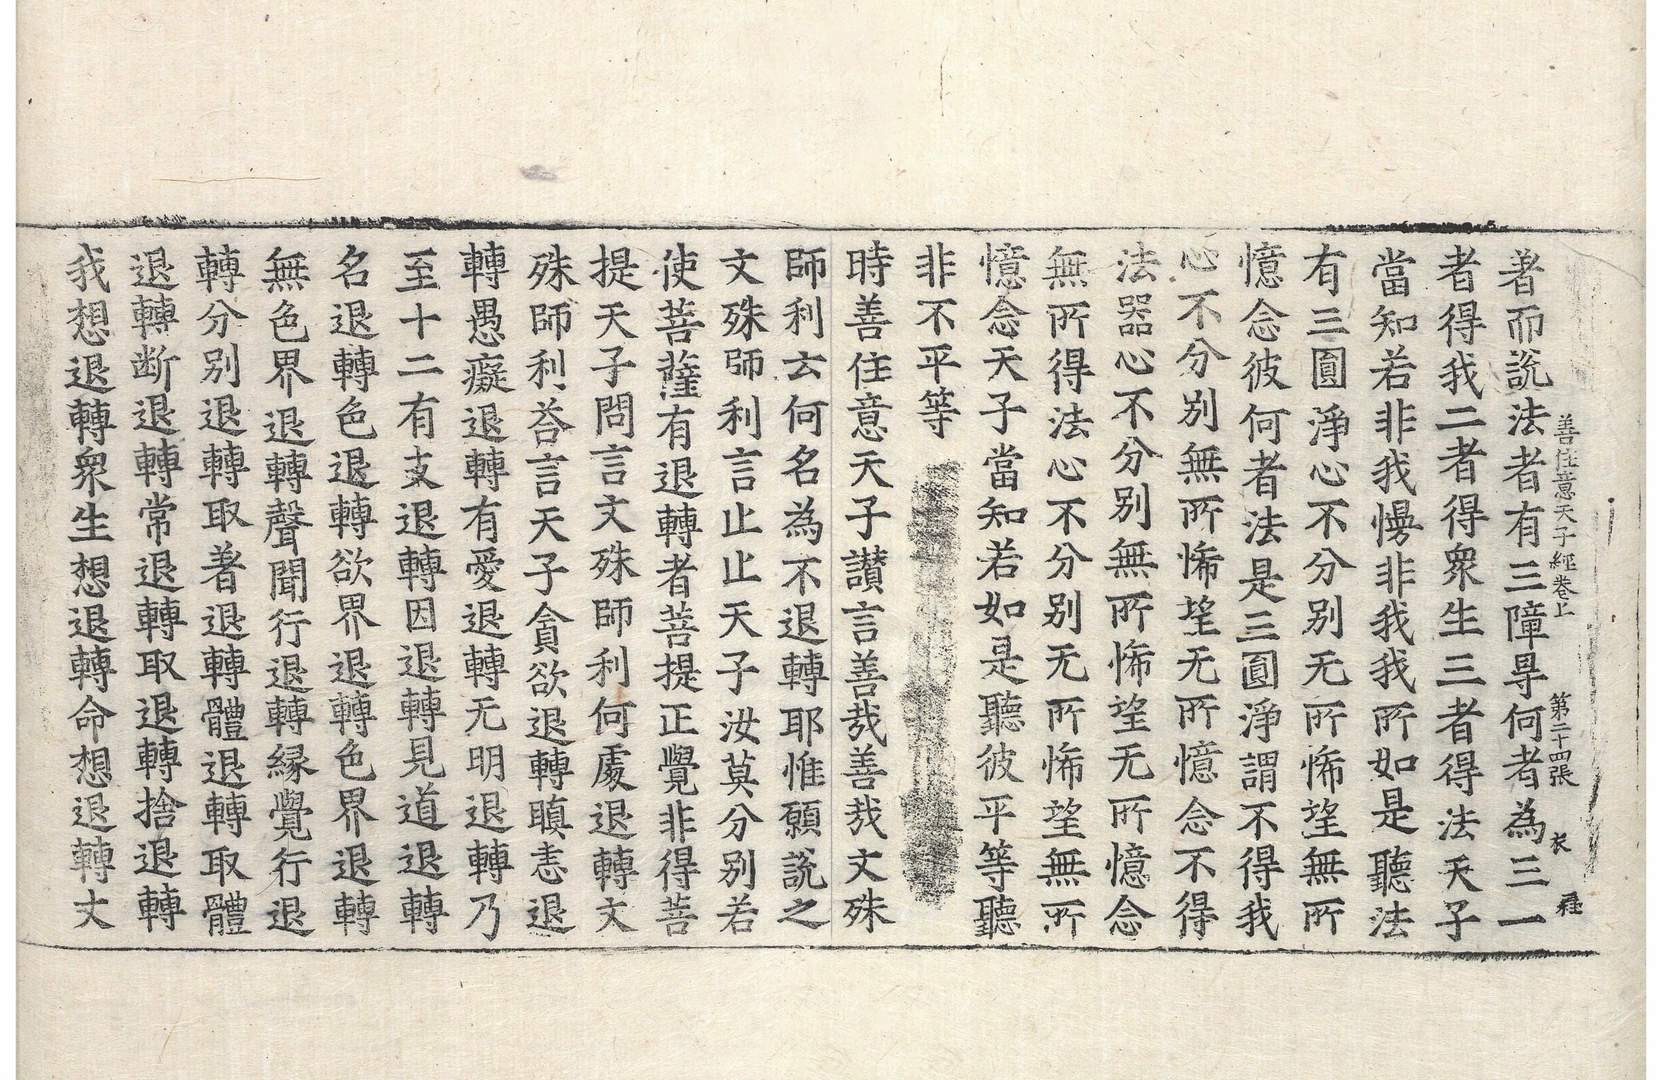 善住意天子經卷上　第二十四張　衣
著而説法者有三障㝵何者為三一
者得我二者得衆生三者得法天子
當知若非我慢非我我所如是聽法
有三圓淨心不分别无所悕望無所
憶念彼何者法是三圓淨謂不得我
心不分别無所悕望无所憶念不得
法器心不分别無所悕望无所憶念
無所得法心不分别无所悕望無所
憶念天子當知若如是聽彼平等聽
非不平等
時善住意天子讃言善哉善哉文殊
師利云何名為不退轉耶惟願説之
文殊師利言止止天子汝莫分别若
使菩薩有退轉者菩提正覺非得菩
提天子問言文殊師利何處退轉文
殊師利荅言天子貪欲退轉瞋恚退
轉愚癡退轉有愛退轉无明退轉乃
至十二有支退轉因退轉見道退轉
名退轉色退轉欲界退轉色界退轉
無色界退轉聲聞行退轉緣覺行退
轉分别退轉取著退轉體退轉取體
退轉断退轉常退轉取退轉捨退轉
我想退轉衆生想退轉命想退轉丈